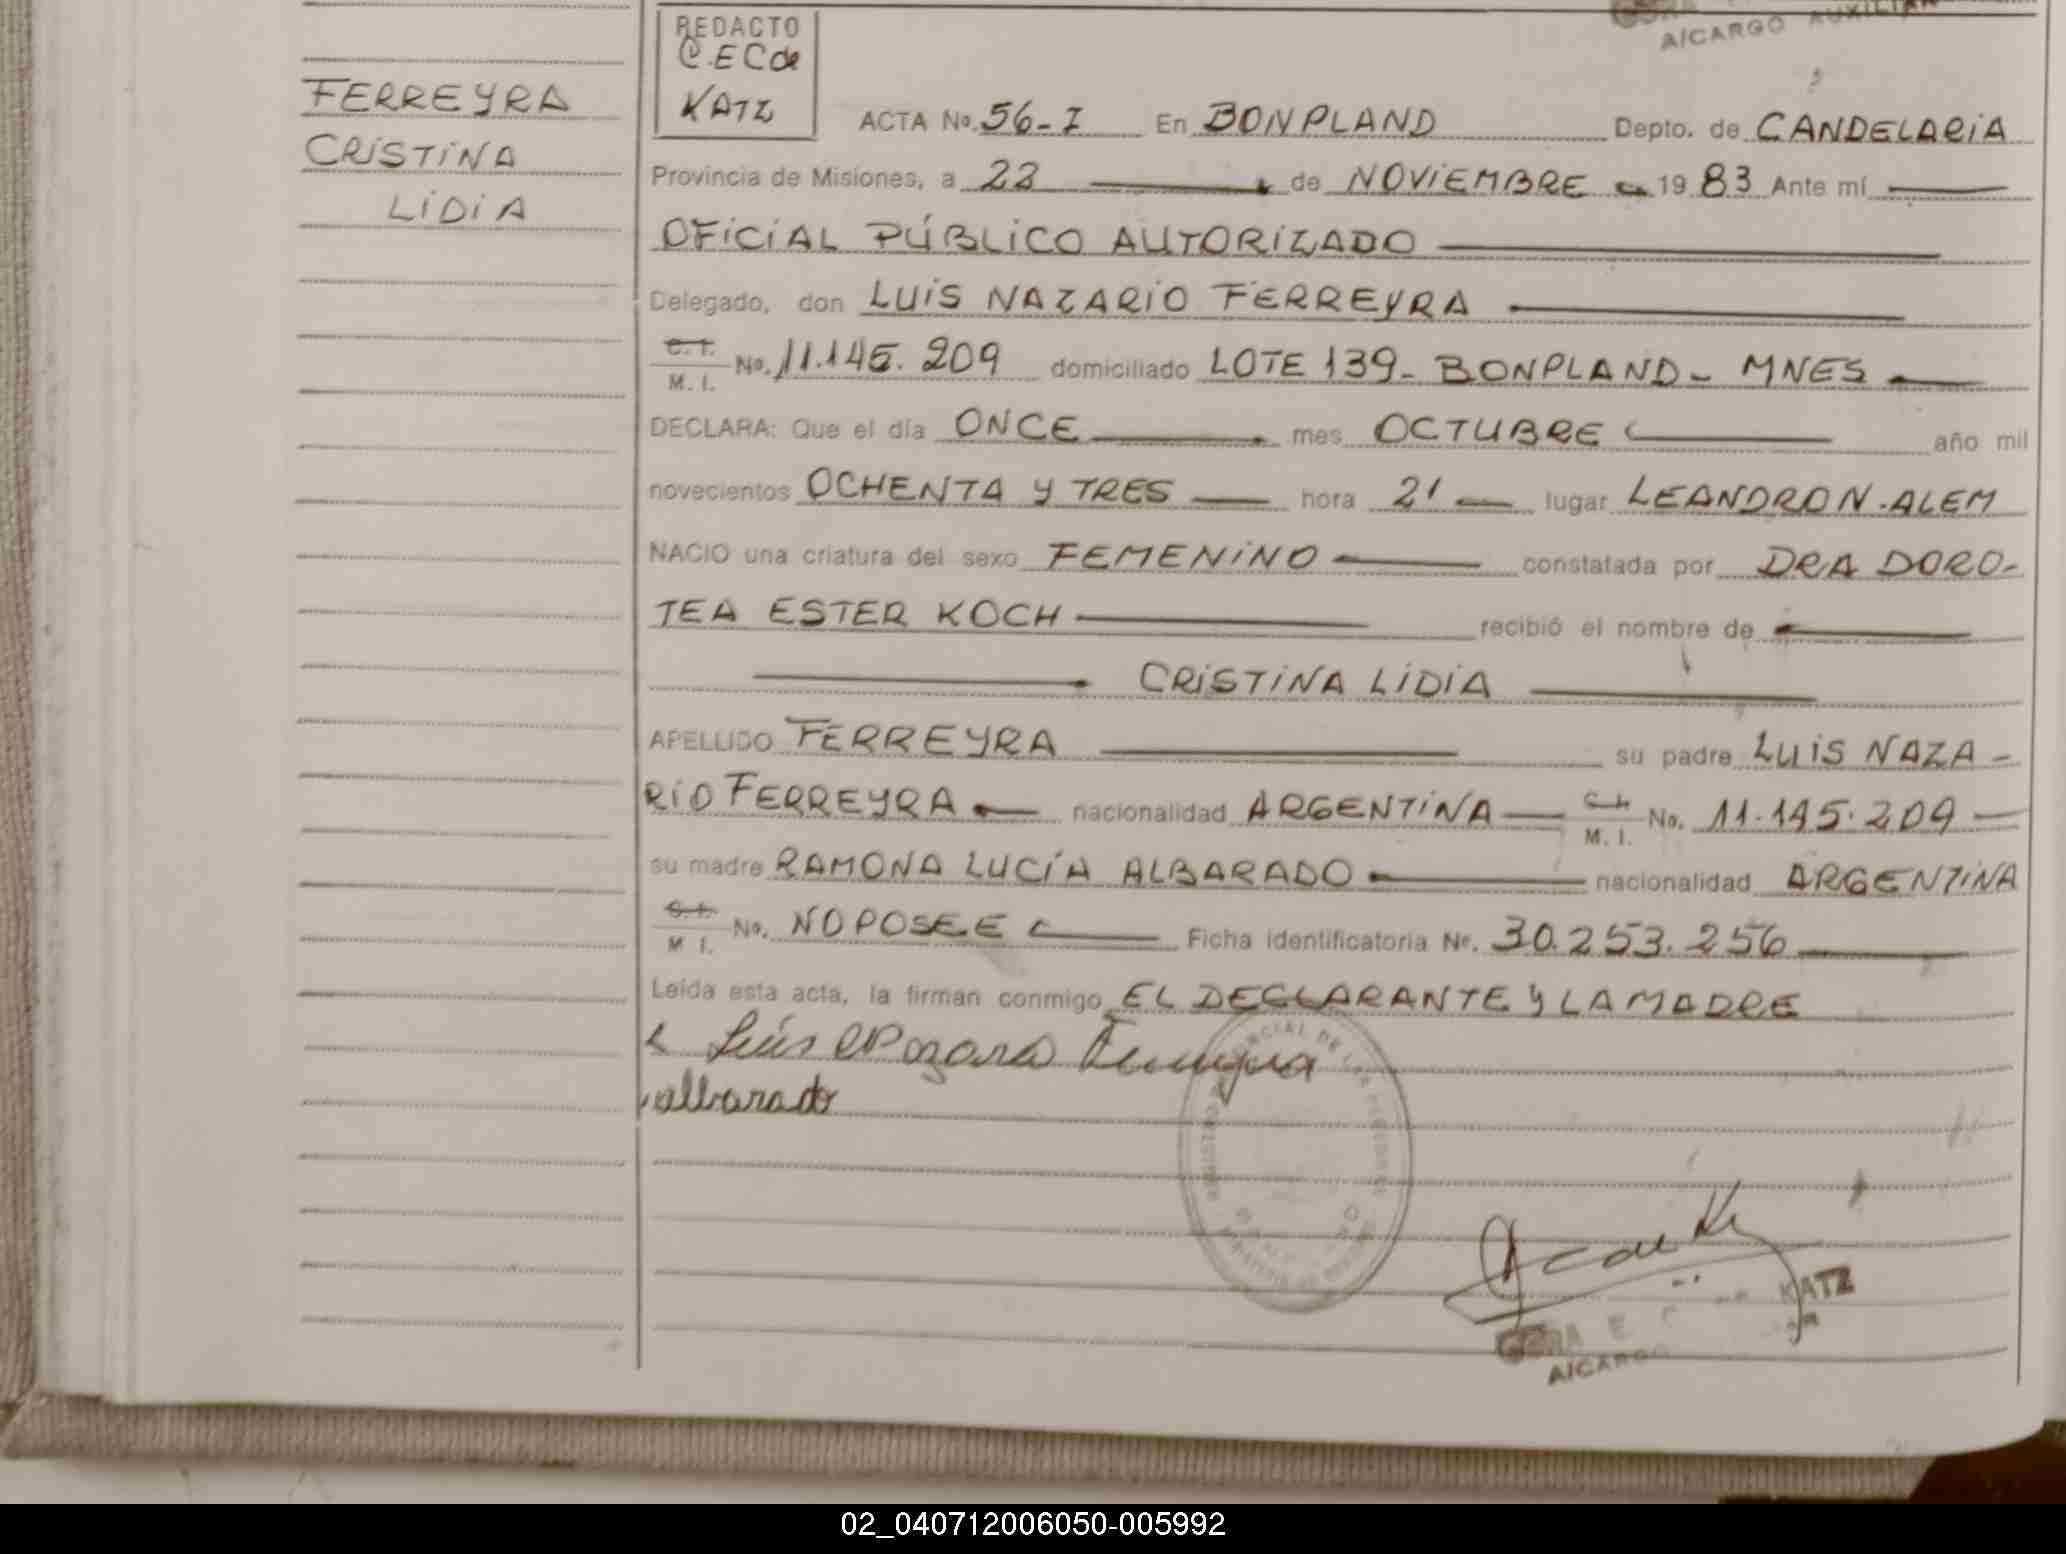 AICARGO AUXILIAR
REDACTO
C.E.C de
KATZ
FERREYRA
CRISTINA
LIDIA
ACTA No. 56-I En BONPLAND Depto. de CANDELARIA
Provincia de Misiones, a 22 de NOVIEMBRE 1983 Ante mí
OFICIAL PÚBLICO AUTORIZADO
Delegado, don LUIS NAZARIO FERREYRA
C. I.
M. I. No. 11.145.209 domiciliado LOTE 139- BONPLAND- MNES
DECLARA: Que el día ONCE mes OCTUBRE año mil
novecientos OCHENTA Y TRES hora 21 lugar LEANDRO N. ALEM
NACIO una criatura del sexo FEMENINO constatada por DRA DORO-
TEA ESTER KOCH recibió el nombre de
CRISTINA LIDIA
APELLIDO FERREYRA su padre LUIS NAZA-
RIO FERREYRA nacionalidad ARGENTINA C. I. M. I. No. 11.145.209
su madre RAMONA LUCÍA ALBARADO nacionalidad ARGENTINA
C. I.
M. I. No. NO POSEE Ficha identificatoria No. 30.253.256
Leída esta acta, la firman conmigo EL DECLARANTE Y LA MADRE
Luis Nazario Ferreyra
albarado
KATZ
AICARGO
02_040712006050-005992